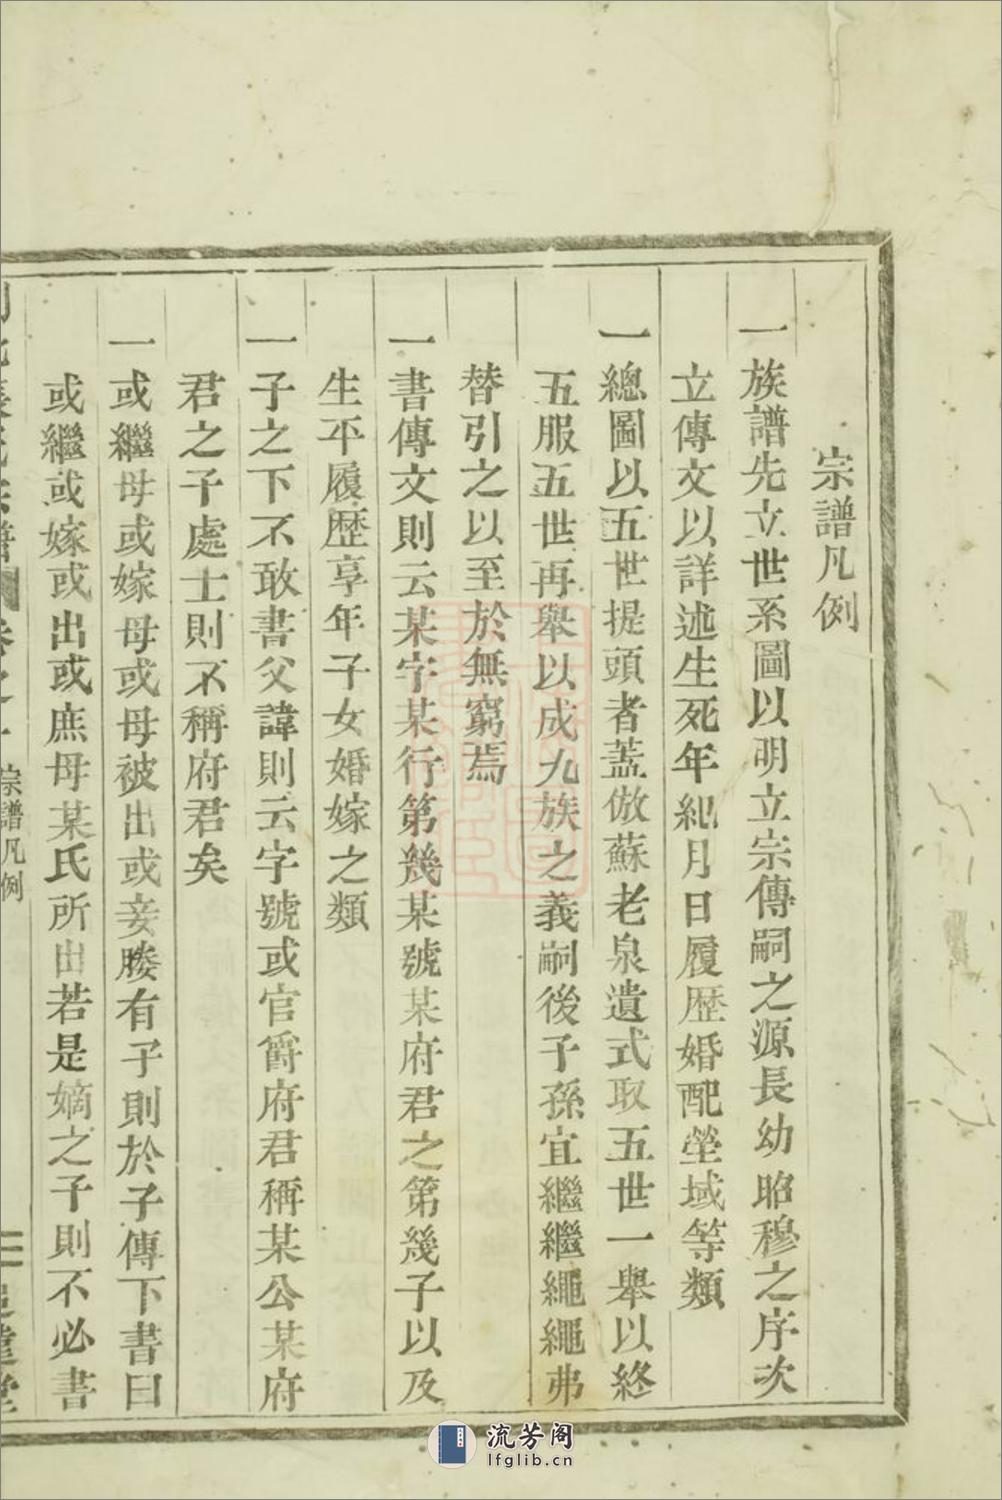 宗譜凡例
一族譜先立世系圖以明立宗傳嗣之源長幼昭穆之序次
立傳文以詳述生死年紀月日履歴婚配塋域等類
一總圖以五世提頭者蓋倣蘇老泉遺式取五世一舉以終
五服五世再舉以成九族之義嗣後子孫宜繼繼繩繩弗
替引之以至於無窮焉
一書傳文則云某字某行第幾某號某府君之第幾子以及
生平履歴享年子女婚嫁之類
一子之下不敢書父諱則云字號或官爵府君稱某公某府
君之子處士則不稱府君矣
一或繼母或嫁母或母被出或妾媵有子則於子傳下書曰
或繼或嫁或出或庶母某氏所出若是嫡之子則不必書
宗譜凡例
流芳阁
lfglib.cn